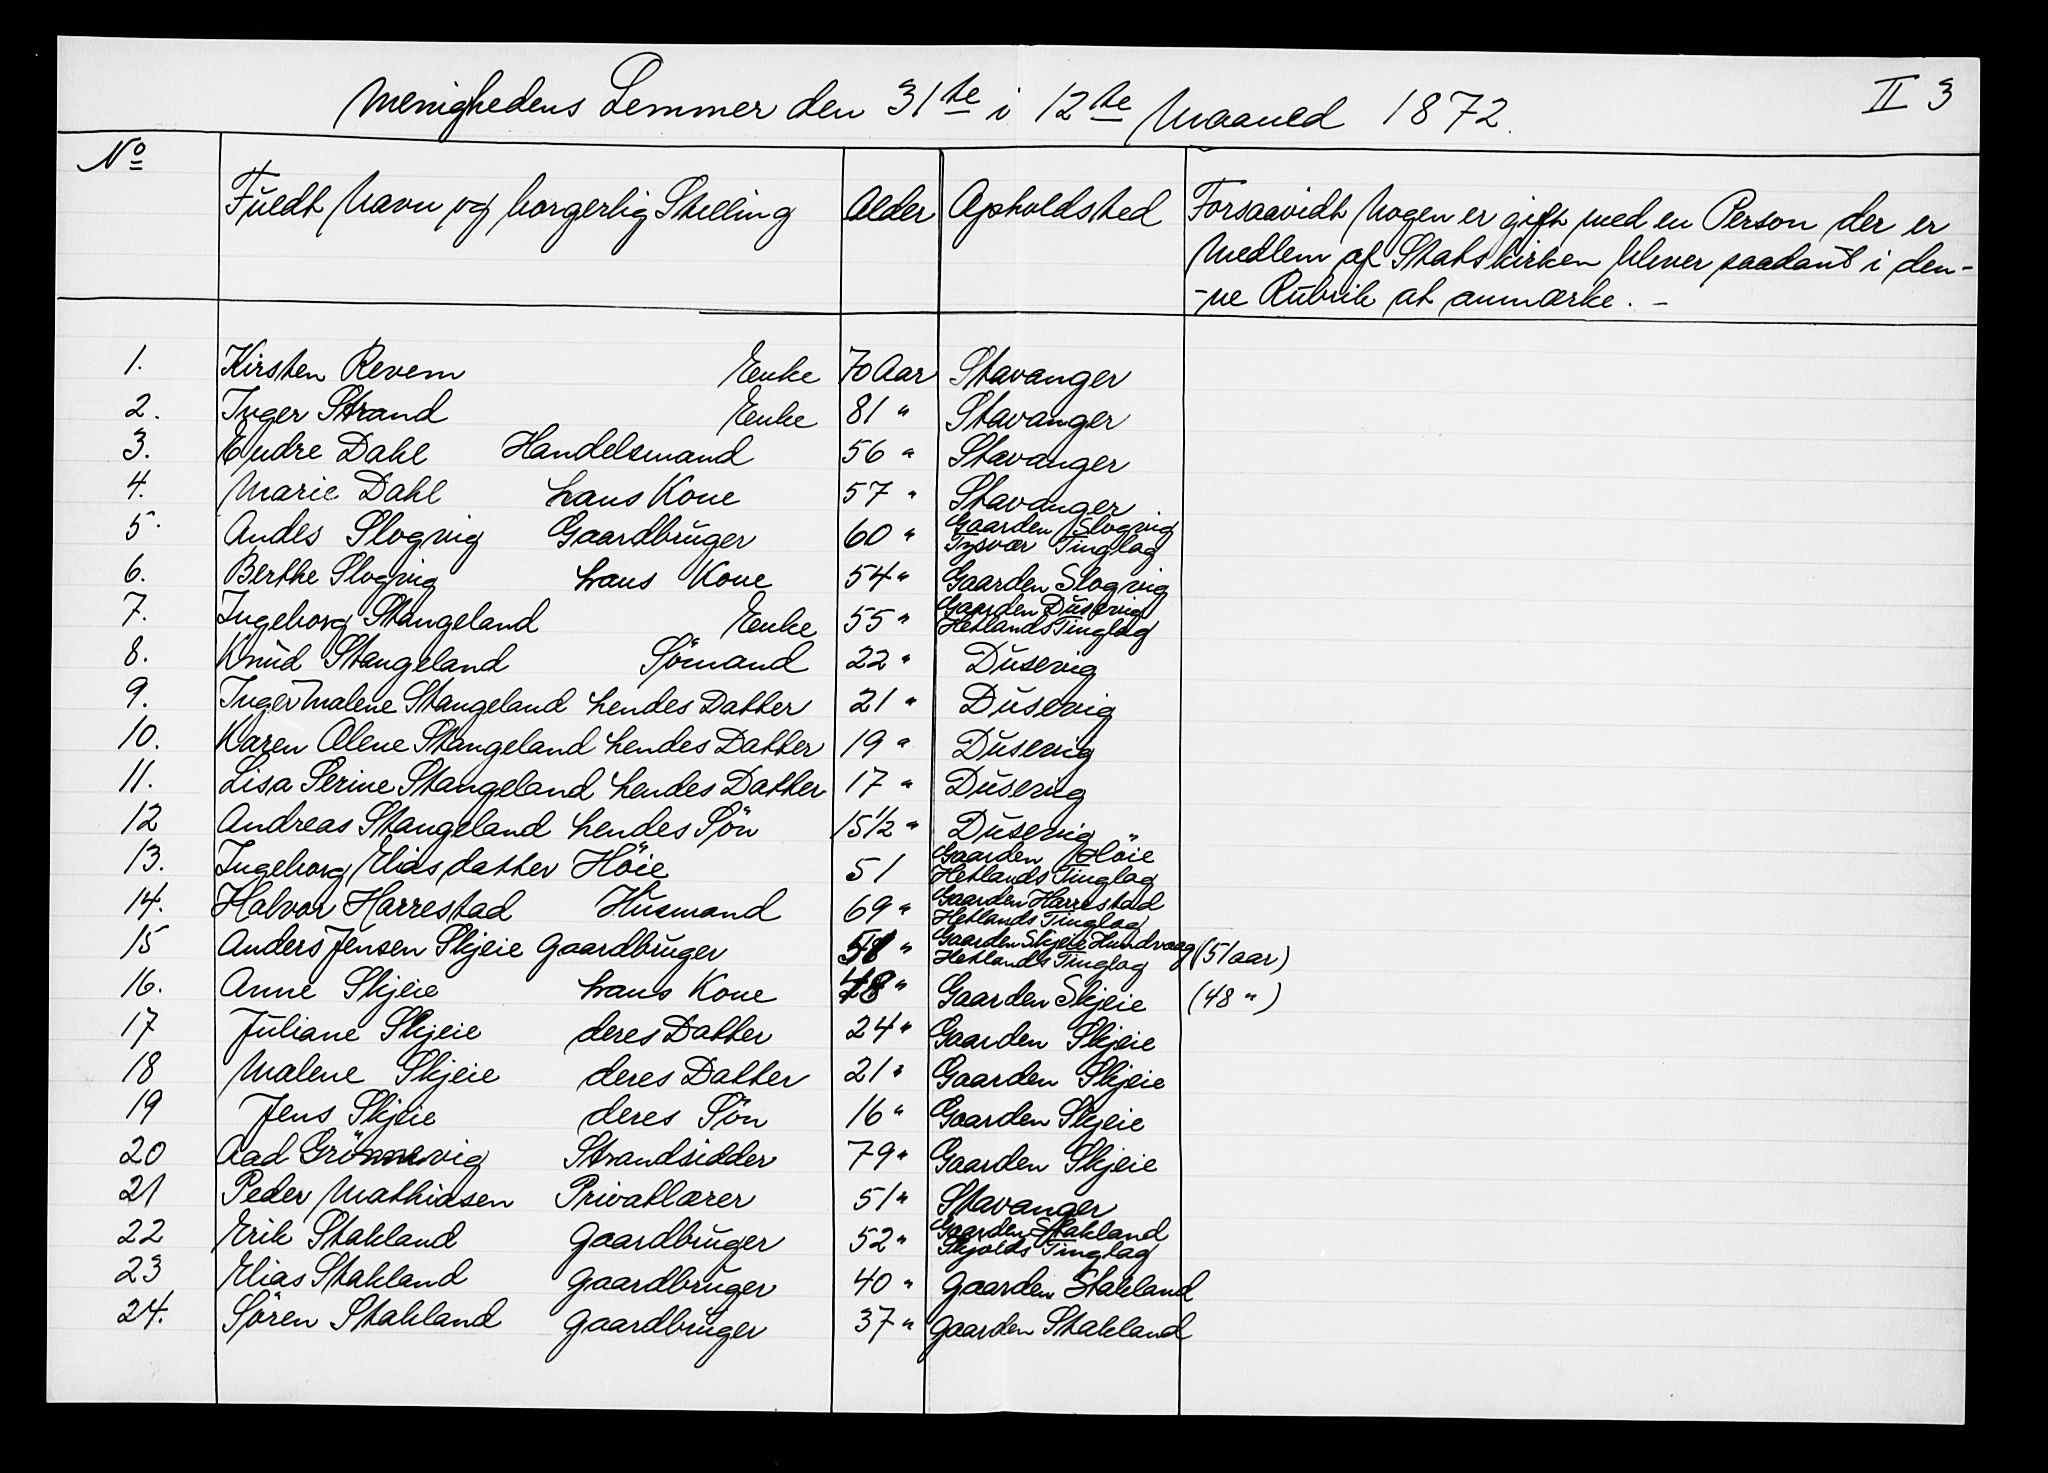 Menighedens Lemmer den 31te i 12te Maaned 1872.
II 3
No
Fuldt Navn og borgerlig Stilling Alder Opholdsted Forsaavidt Nogen er gift med en Person der er
Medlem af Statskirken bliver saadant i den-
-ne Rubrik at anmærke. -
1. Kirsten Revem Enke 70 Aar Stavanger
2. Inger Strand Enke 81 " Stavanger
3. Endre Dahl Handelsmand 56 " Stavanger
4. Marie Dahl hans Kone 57 " Stavanger
5. Andes Slogvig Gaardbruger 60 " Gaarden Slogvig
Tysvær Tinglag
6. Berthe Slogvig hans Kone 54 " Gaarden Slogvig
7. Ingeborg Stangeland Enke 55 " Gaarden Dusevig
Hetlands Tinglag
8. Knud Stangeland Sömand 22 " Dusevig
9. Inger Malene Stangeland hendes Datter 21 " Dusevig
10. Karen Olene Stangeland hendes Datter 19 " Dusevig
11. Lisa Serine Stangeland hendes Datter 17 " Dusevig
12 Andreas Stangeland hendes Sön 15 1/2 " Dusevig
13. Ingeborg Eliasdatter Höie 51 Gaarden Höie
Hetlands Tinglag
14. Halvor Harrestad Husmand 69 " Gaarden Harrestad
Hetlands Tinglag
15 Anders Jensen Skjeie Gaardbruger 51 " Gaarden Skjeie Hundvaag (51 aar)
Hetlands Tinglag
16. Anne Skjeie hans Kone 48 " Gaarden Skjeie (48 ")
17 Juliane Skjeie deres Datter 24 " Gaarden Skjeie
18 Malene Skjeie deres Datter 21 " Gaarden Skjeie
19 Jens Skjeie deres Sön 16 " Gaarden Skjeie
20 Aad Grönnevig Strandsidder 79 " Gaarden Skjeie
21 Peder Mathiasen Privatlærer 51 " Stavanger
22 Erik Stakland Gaardbruger 52 " Gaarden Stakland
Skjolds Tinglag
23 Elias Stakland Gaardbruger 40 " Gaarden Stakland
24. Sören Stakland Gaardbruger 37 " Gaarden Stakland